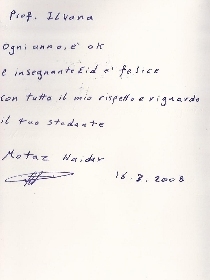 Prof. Ilvana
Ogni anno, è ok
e insegnante Eid e' felice
con tutto il mio rispetto e riguardo
il tuo studante
Motaz Haidar
16.8.2008